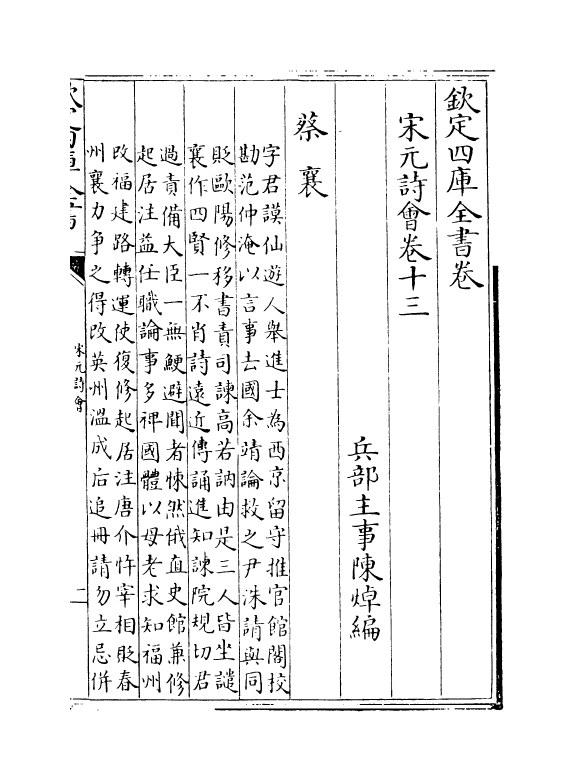 欽定四庫全書卷
宋元詩會卷十三
兵部主事陳焯編
蔡襄
字君謨仙遊人舉進士為西京留守推官館閣校
勘范仲淹以言事去國余靖論救之尹洙請與同
貶歐陽修移書責司諫高若訥由是三人皆坐譴
襄作四賢一不肖詩遠近傳誦進知諫院規切君
過責備大臣一無鯁避聞者悚然俄直史館兼修
起居注益任職論事多裨國體以母老求知福州
改福建路轉運使復修起居注唐介忤宰相貶春
州襄力爭之得改英州溫成后追冊請勿立忌併
宋元詩會